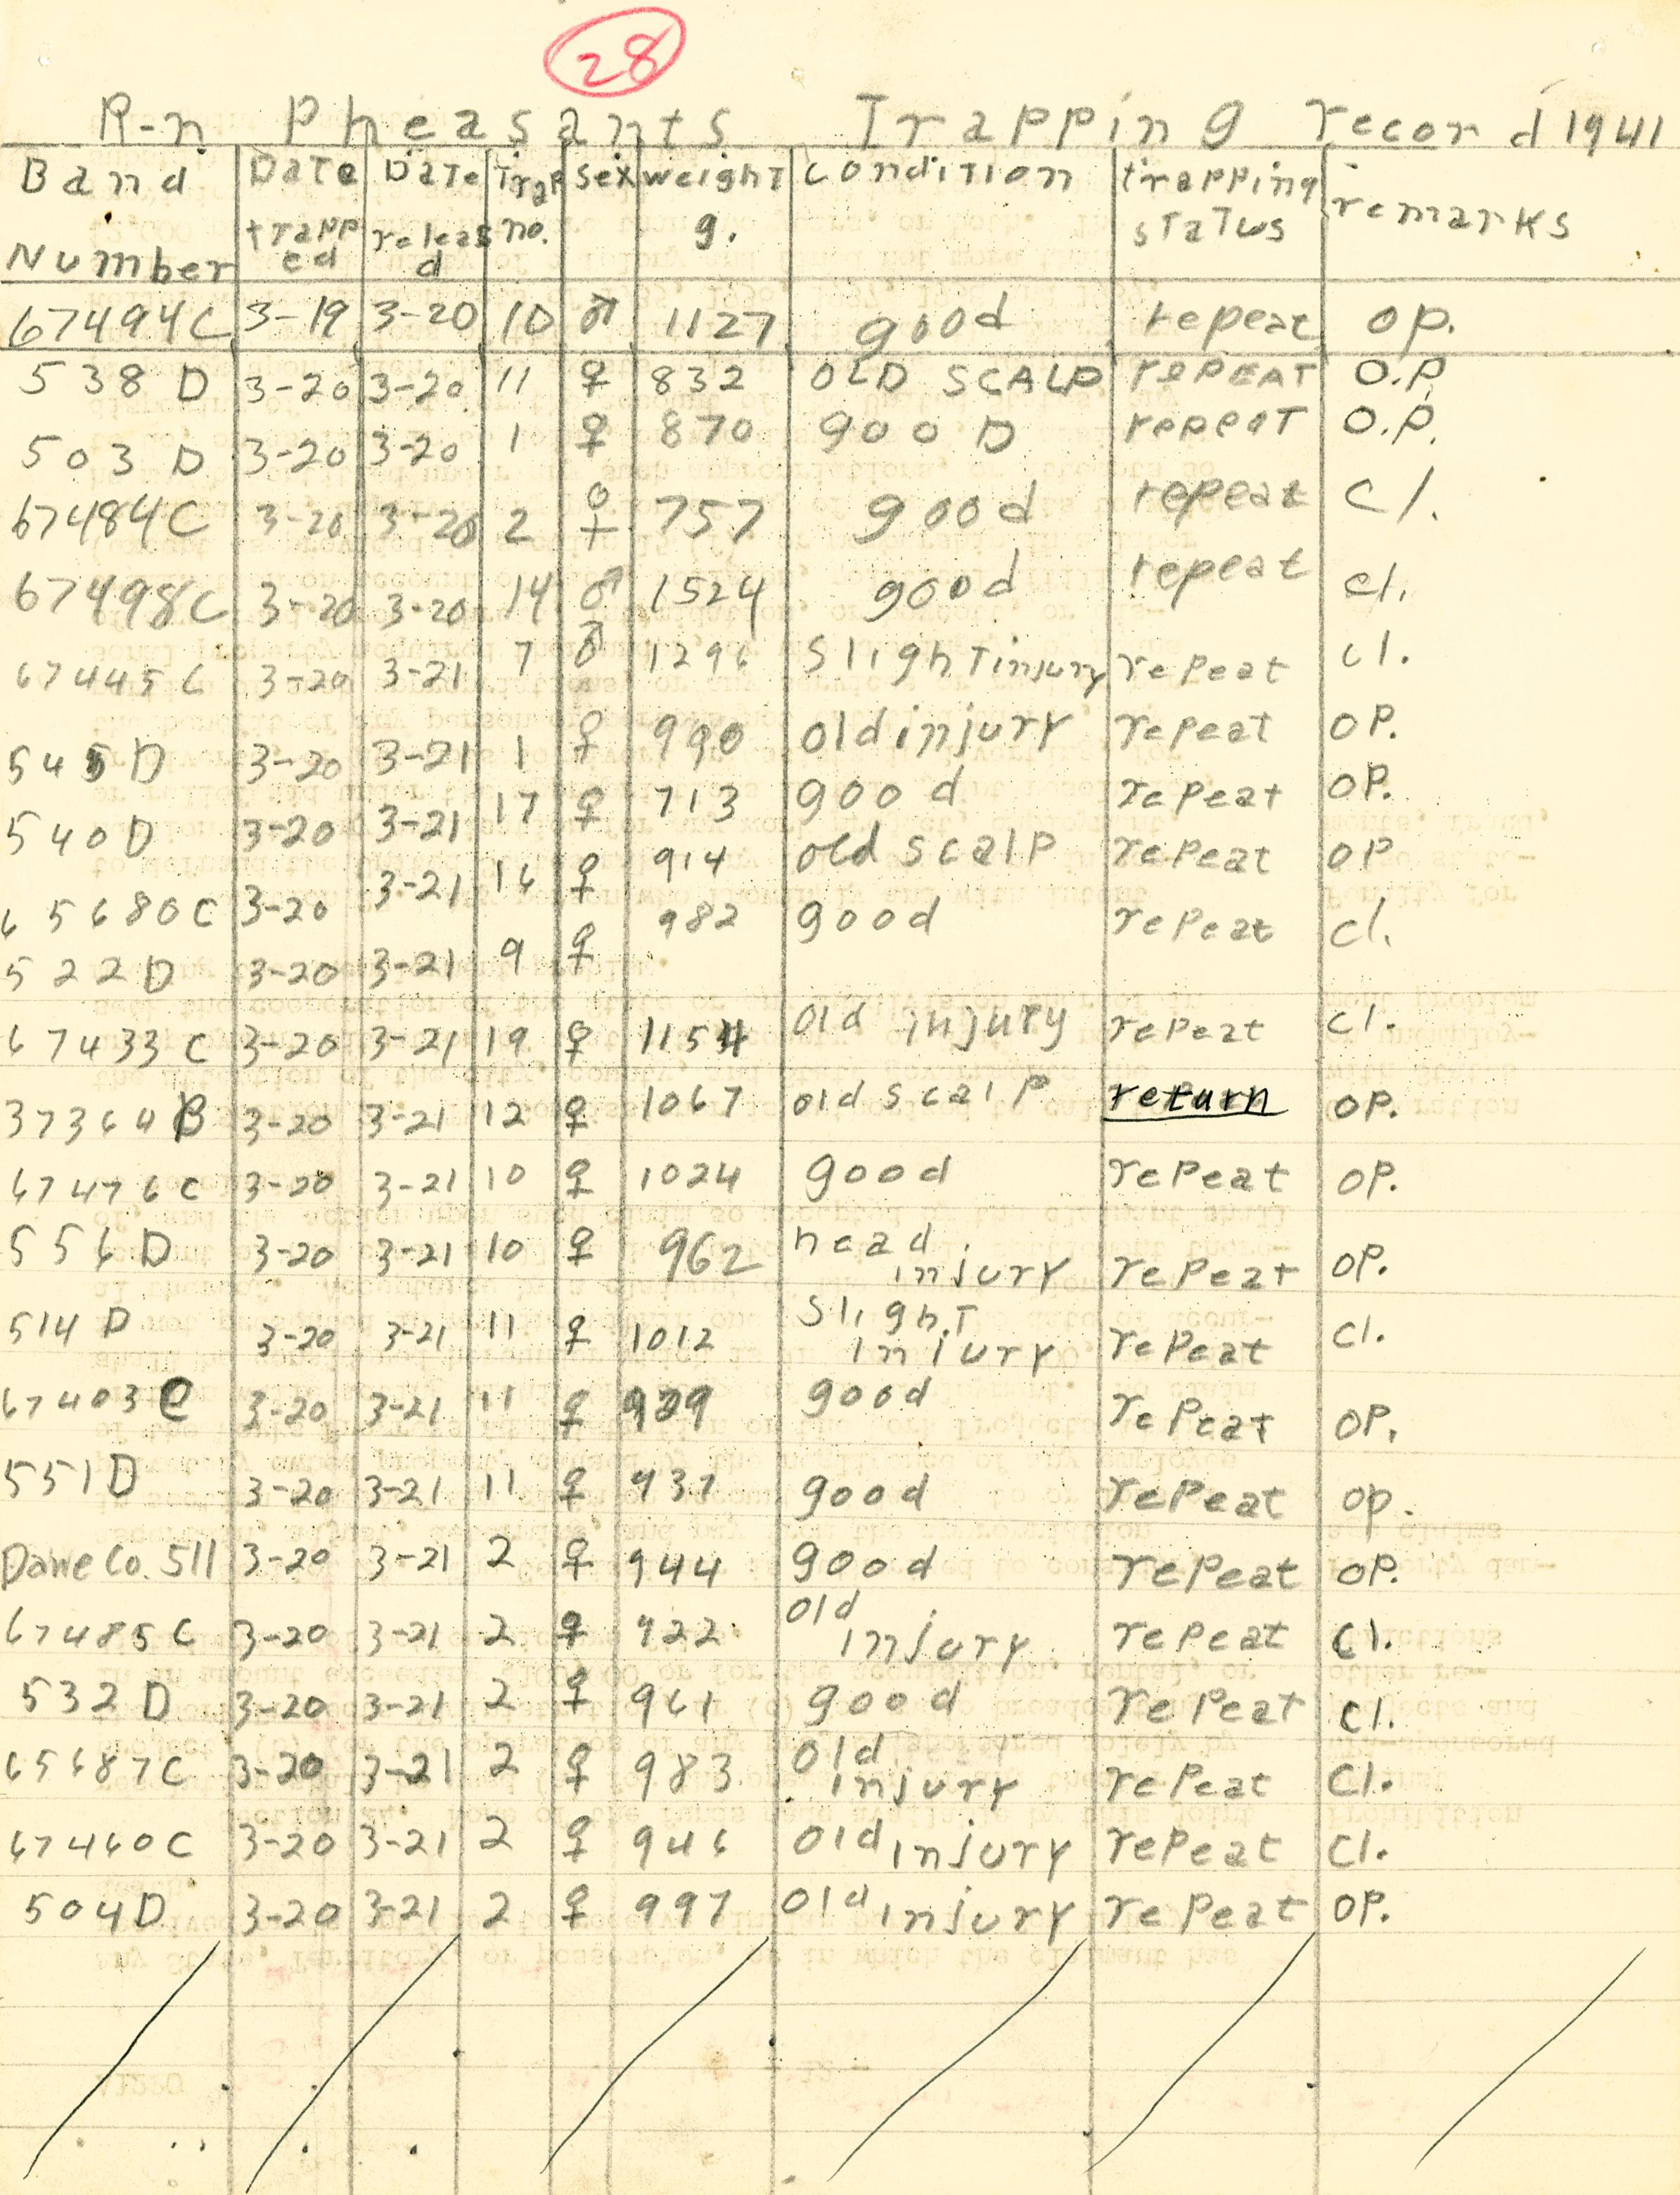 28
R-n Pheasants Trapping record 1941
Band Number Date trapped Date releasd Trap no. Sex weight g. condition trapping status remarks
67494C 3-19 3-20 10 ♂ 1127 good repeat op.
538 D 3-20 3-20 11 ♀ 832 OLD SCALP rePEAT O.P
503 D 3-20 3-20 1 ♀ 870 gooD repeaT O.P.
67484C 3-20 3-20 2 ♀ 757 good repeat cl.
67498C 3-20 3-20 14 ♂ 1524 good repeat cl.
67445C 3-20 3-21 7 ♂ 1296 slighT injury repeat cl.
545D 3-20 3-21 1 ♀ 990 old injury repeat OP.
540D 3-20 3-21 17 ♀ 713 good repeat OP.
65680C 3-20 3-21 16 ♀ 914 old scalp repeat OP
522D 3-20 3-21 9 ♀ 982 good repeat cl.
67433C 3-20 3-21 19 ♀ 1154 old injury repeat cl.
37364B 3-20 3-21 12 ♀ 1067 old scalp return OP.
67476C 3-20 3-21 10 ♀ 1024 good repeat OP.
556D 3-20 3-21 10 ♀ 962 head injury repeat OP.
514 D 3-20 3-21 11 ♀ 1012 slighT injury repeat cl.
67403C 3-20 3-21 11 ♀ good repeat OP.
551D 3-20 3-21 11 ♀ 937 good repeat op.
Dane Co. 511 3-20 3-21 2 ♀ 944 good repeat OP.
67485C 3-20 3-21 2 ♀ 922 old injury repeat cl.
532D 3-20 3-21 2 ♀ 961 good repeat cl.
65687C 3-20 3-21 2 ♀ 983 old injury repeat cl.
67460C 3-20 3-21 2 ♀ 946 old injury repeat cl.
504D 3-20 3-21 2 ♀ 997 old injury repeat OP.